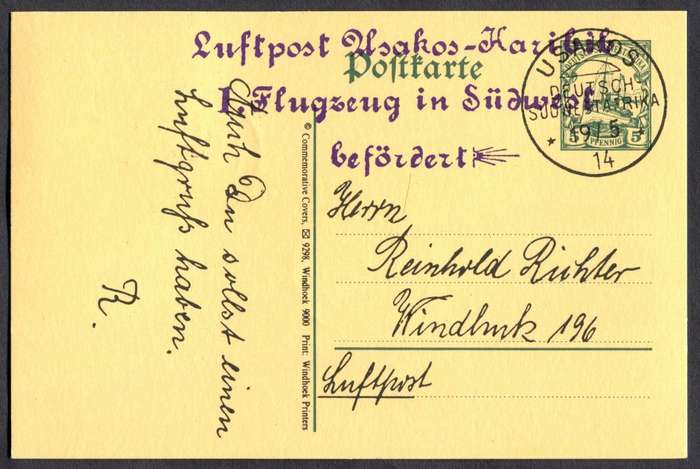 Luftpost Usakos-Karibib
Postkarte
1. Flugzeug in Südwest
befördert
USAKOS
DEUTSCH-
SÜDWESTAFRIKA
19/5
14
5 PFENNIG
Herrn
Reinhold Richter
Windhuk 196
Luftpost
© Commemorative Covers, ✉ 9298, Windhoek 9000 Print: Windhoek Printers
Auch Du sollst einen
Luftgruß haben.
R.